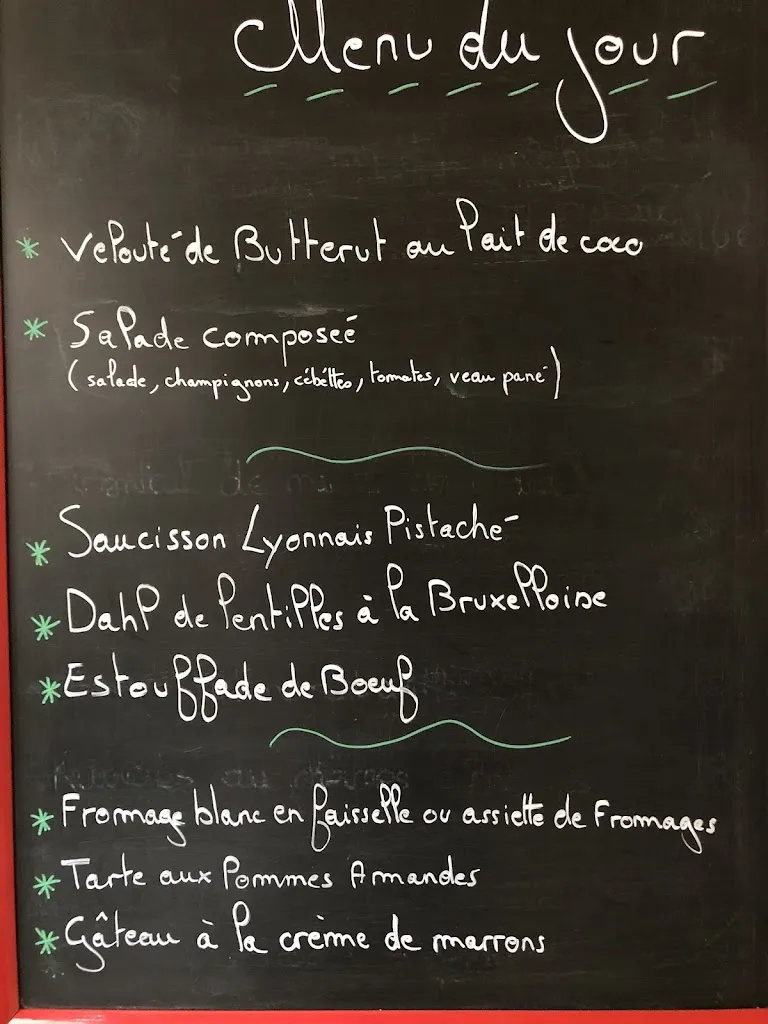 Menu du jour
* Velouté de Butterut au lait de coco
* Salade composeé
(salade, champignons, cébéttes, tomates, veau pané)
* Saucisson Lyonnais Pistaché
* Dahl de lentilles à la Bruxelloise
* Estouffade de Boeuf
* Fromage blanc en faisselle ou assiette de Fromages
* Tarte aux Pommes Amandes
* Gâteau à la crème de marrons